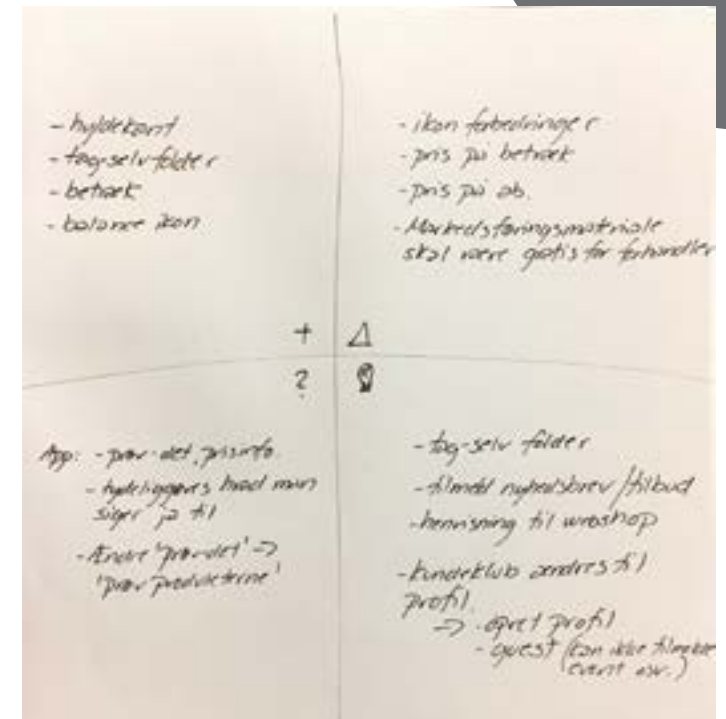 - hyldekant
- tag-selv folder
- betræk
- balance ikon
- ikon forbedringer
- pris på betræk
- pris på ab.
- Markedsføringsmateriale
skal være gratis for forhandler
+
Δ
?
App: - prøv-det, prisinfo
- tydeliggøres hvad man
siger ja til
- Ændre 'prøv det' ->
'prøv produkterne'
- tag-selv folder
- tilmeld nyhedsbrev/tilbud
- henvisning til webshop
- kundeklub ændres til
profil
-> - opret profil
- guest (kan ikke tilmelde
event osv.)